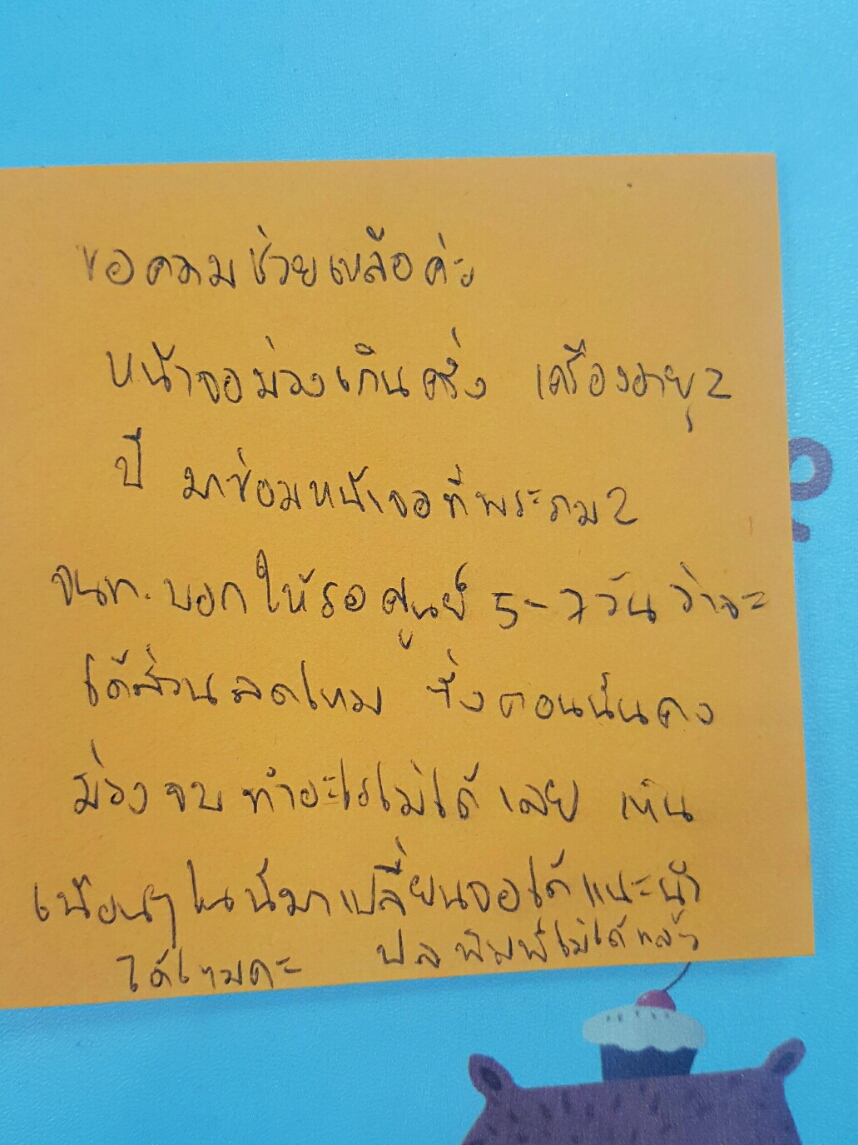 ขอความช่วยเหลือค่ะ
หน้าจอม่วงเกินครึ่ง เครื่องอายุ 2
ปี มาซ่อมหน้าจอที่พระราม 2
จนท. บอกให้รอศูนย์ 5-7 วัน ว่าจะ
ได้ส่วนลดไหม ซึ่งตอนนั้นคง
ม่วงจนทำอะไรไม่ได้เลย เห็น
เพื่อนๆในนี้มาเปลี่ยนจอได้ แนะนำ
ได้ไหมคะ ปล พิมพ์ไม่ได้แล้ว